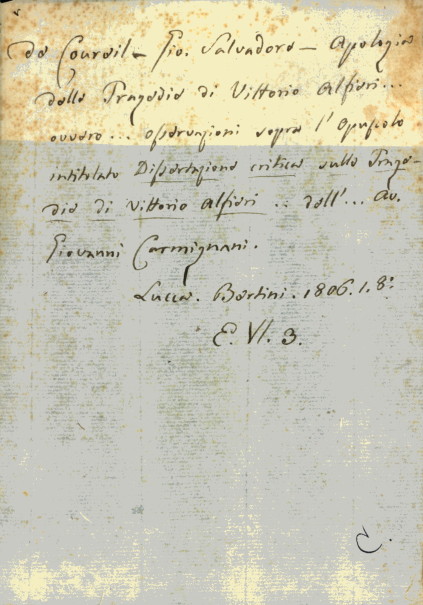 de Coureil – Gio. Salvadore – Apologia
delle Tragedie di Vittorio Alfieri...
ovvero... Osservazioni sopra l'Opuscolo
intitolato Dissertazione critica sulle Trage-
die di Vittorio Alfieri .. dell'... Av.
Giovanni Carmignani.
Lucca. Bertini. 1806. 1. 8:
E. VI. 3.
C.